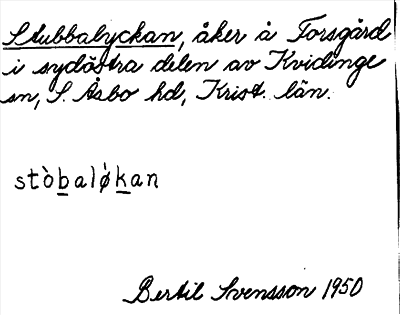 Stubbalyckan, åker å Forsgård
i sydöstra delen av Kvidinge
sn, S. Åsbo hd, Krist. län.
stòb̲alø̀k̲an
Bertil Svensson 1950